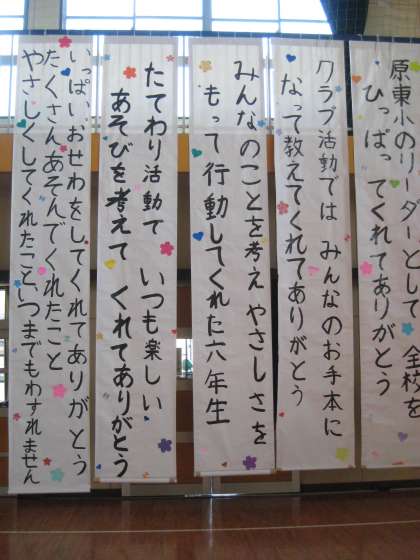 原東小のリーダーとして 全校を
ひっぱってくれてありがとう
クラブ活動では みんなのお手本に
なって教えてくれてありがとう
みんなのことを考え やさしさを
もって行動してくれた六年生
たてわり活動で いつも楽しい
あそびを考えて くれてありがとう
いっぱいおせわをしてくれてありがとう
たくさんあそんでくれたこと
やさしくしてくれたこといつまでもわすれません